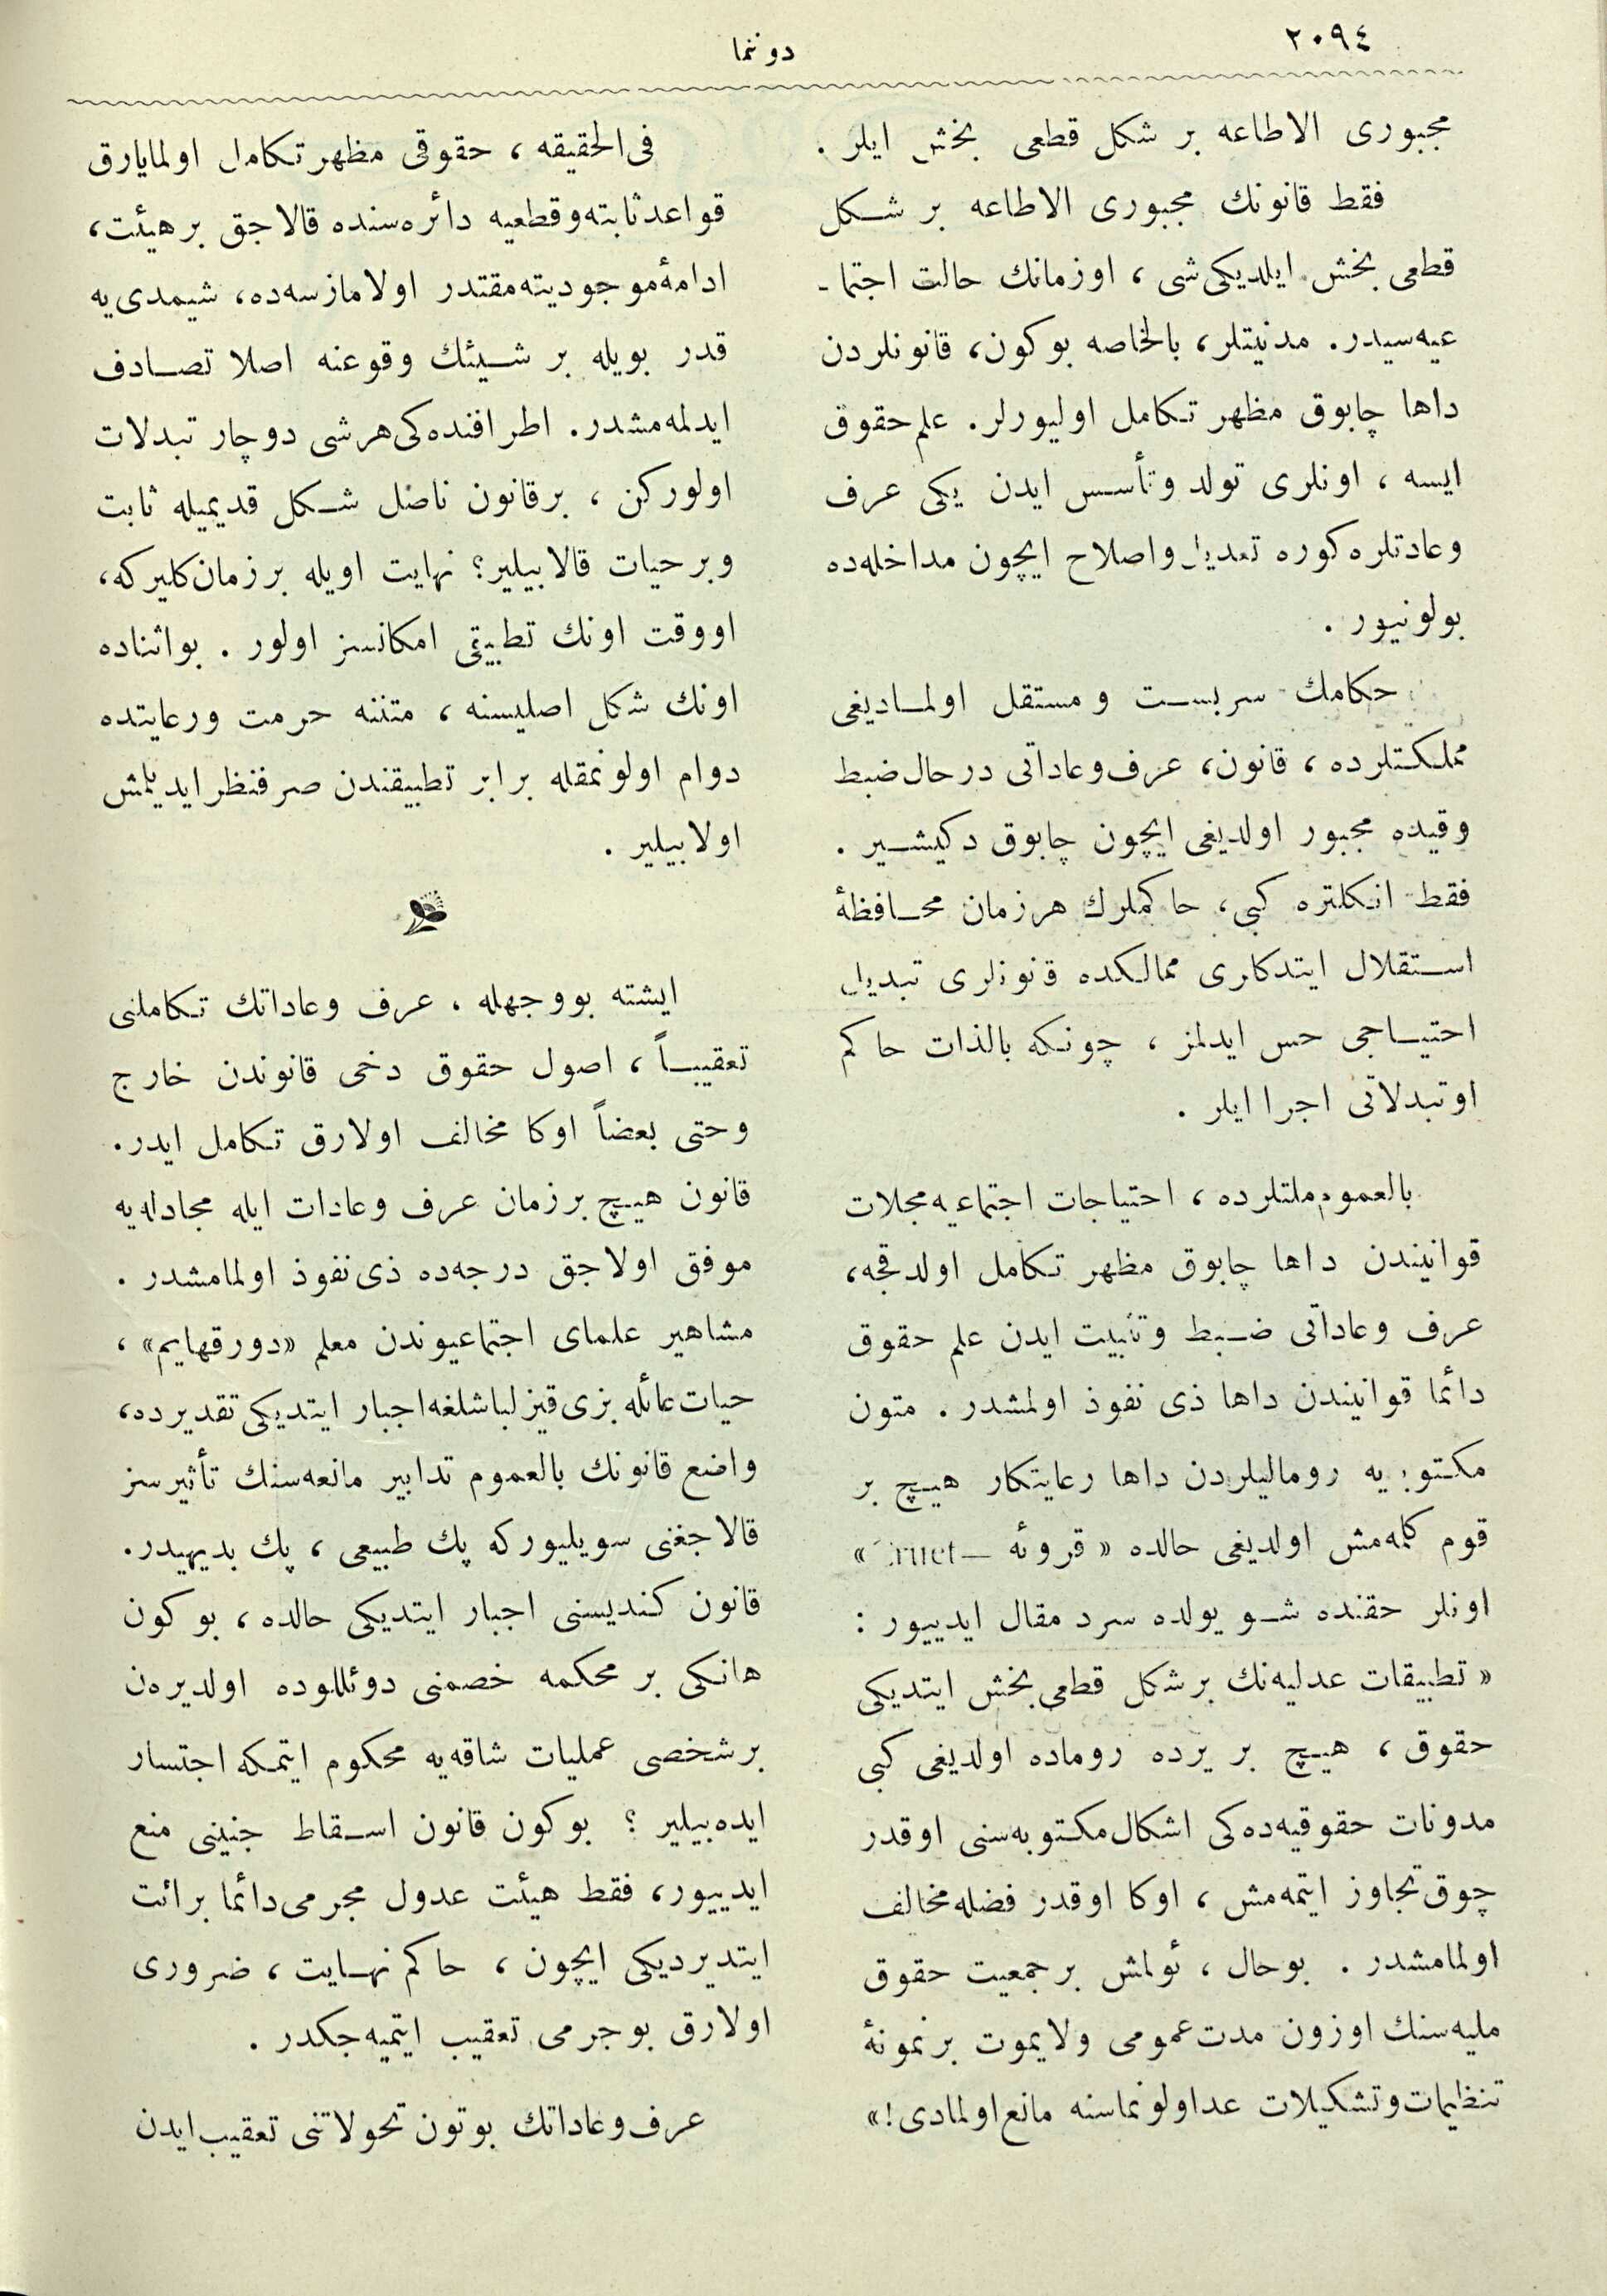 ٢٠٩٤
دوننما
مجبورى الاطاعه بر شكل قطعى بخش ايلر .
فقط قانونك مجبورى الاطاعه بر شكل
قطعى بخش ايلديكى شى ، اوزمانك حالت اجتما ـ
عيه‌سيدر. مدنيتلر، بالخاصه بوكون، قانونلردن
داها چابوق مظهر تكامل اوليورلر. علم حقوق
ايسه ، اونلرى تولد وتأسس ايدن يكى عرف
وعادتلره كوره تعديل واصلاح ايچون مداخله‌ده
بولونيور .
حكامك سربست ومستقل اولماديغى
مملكتلرده ، قانون، عرف وعاداتى درحال ضبط
وقيده مجبور اولديغى ايچون چابوق دكيشير .
فقط انكلتره كبى، حاكملرك هرزمان محافظهٔ
استقلال ايتدكلرى ممالكده قانونلرى تبديل
احتياجى حس ايدلمز ، چونكه بالذات حاكم
اوتبدلاتى اجرا ايلر .
بالعموم ملتلرده ، احتياجات اجتماعيه مجلات
قوانيندن داها چابوق مظهر تكامل اولدقجه،
عرف وعاداتى ضبط وتثبيت ايدن علم حقوق
دائما قوانيندن داها ذى نفوذ اولمشدر. متون
مكتوبه‌يه روماليلردن داها رعايتكار هيچ بر
قوم كلمه‌مش اولديغى حالده « قروئه — Cruet »
اونلر حقنده شو يولده سرد مقال ايدييور :
« تطبيقات عدليه‌نك برشكل قطعى بخش ايتديكى
حقوق ، هيچ بر يرده روماده اولديغى كبى
مدونات حقوقيه‌ده‌كى اشكال مكتوبه‌سنى اوقدر
چوق تجاوز ايتمه‌مش ، اوكا اوقدر فضله مخالف
اولمامشدر . بوحال ، ئولمش برجمعيت حقوق
مليه‌سنك اوزون مدت عمومى ولايموت برنمونهٔ
تنظيمات وتشكيلات عداولونماسنه مانع اولمادى!»
فى‌الحقيقه ، حقوقى مظهر تكامل اولمايارق
قواعد ثابته وقطعيه دائره‌سنده قالاجق برهيئت،
ادامهٔ موجوديته مقتدر اولامازسه‌ده، شيمدى‌يه
قدر بويله بر شيئك وقوعنه اصلا تصادف
ايدلمه‌مشدر. اطرافنده‌كى هرشى دوچار تبدلات
اولوركن ، برقانون ناصل شكل قديميله ثابت
وبرحيات قالابيلير؟ نهايت اويله برزمان كليركه،
اووقت اونك تطبيقى امكانسز اولور . بواثناده
اونك شكل اصليسنه ، متننه حرمت ورعايتده
دوام اولونمقله برابر تطبيقندن صرفنظر ايديلمش
اولابيلير .
ايشته بووجهله ، عرف وعاداتك تكاملنى
تعقيباً ، اصول حقوق دخى قانوندن خارج
وحتى بعضاً اوكا مخالف اولارق تكامل ايدر.
قانون هيچ برزمان عرف وعادات ايله مجادله‌يه
موفق اولاجق درجه‌ده ذى نفوذ اولمامشدر .
مشاهير علماى اجتماعيوندن معلم «دورقهايم» ،
حيات عائله بزى قيزلباشلغه اجبار ايتديكى تقديرده،
واضع قانونك بالعموم تدابير مانعه‌سنك تأثيرسز
قالاجغنى سويليوركه پك طبيعى ، پك بديهيدر.
قانون كنديسنى اجبار ايتديكى حالده ، بوكون
هانكى بر محكمه خصمنى دوئللوده اولديره‌ن
برشخصى عمليات شاقه‌يه محكوم ايتمكه اجتسار
ايده‌بيلير ؟ بوكون قانون اسقاط جنينى منع
ايدييور، فقط هيئت عدول مجرمى دائما برائت
ايتديرديكى ايچون ، حاكم نهايت ، ضرورى
اولارق بوجرمى تعقيب ايتميه‌جكدر .
عرف وعاداتك بوتون تحولاتنى تعقيب ايدن